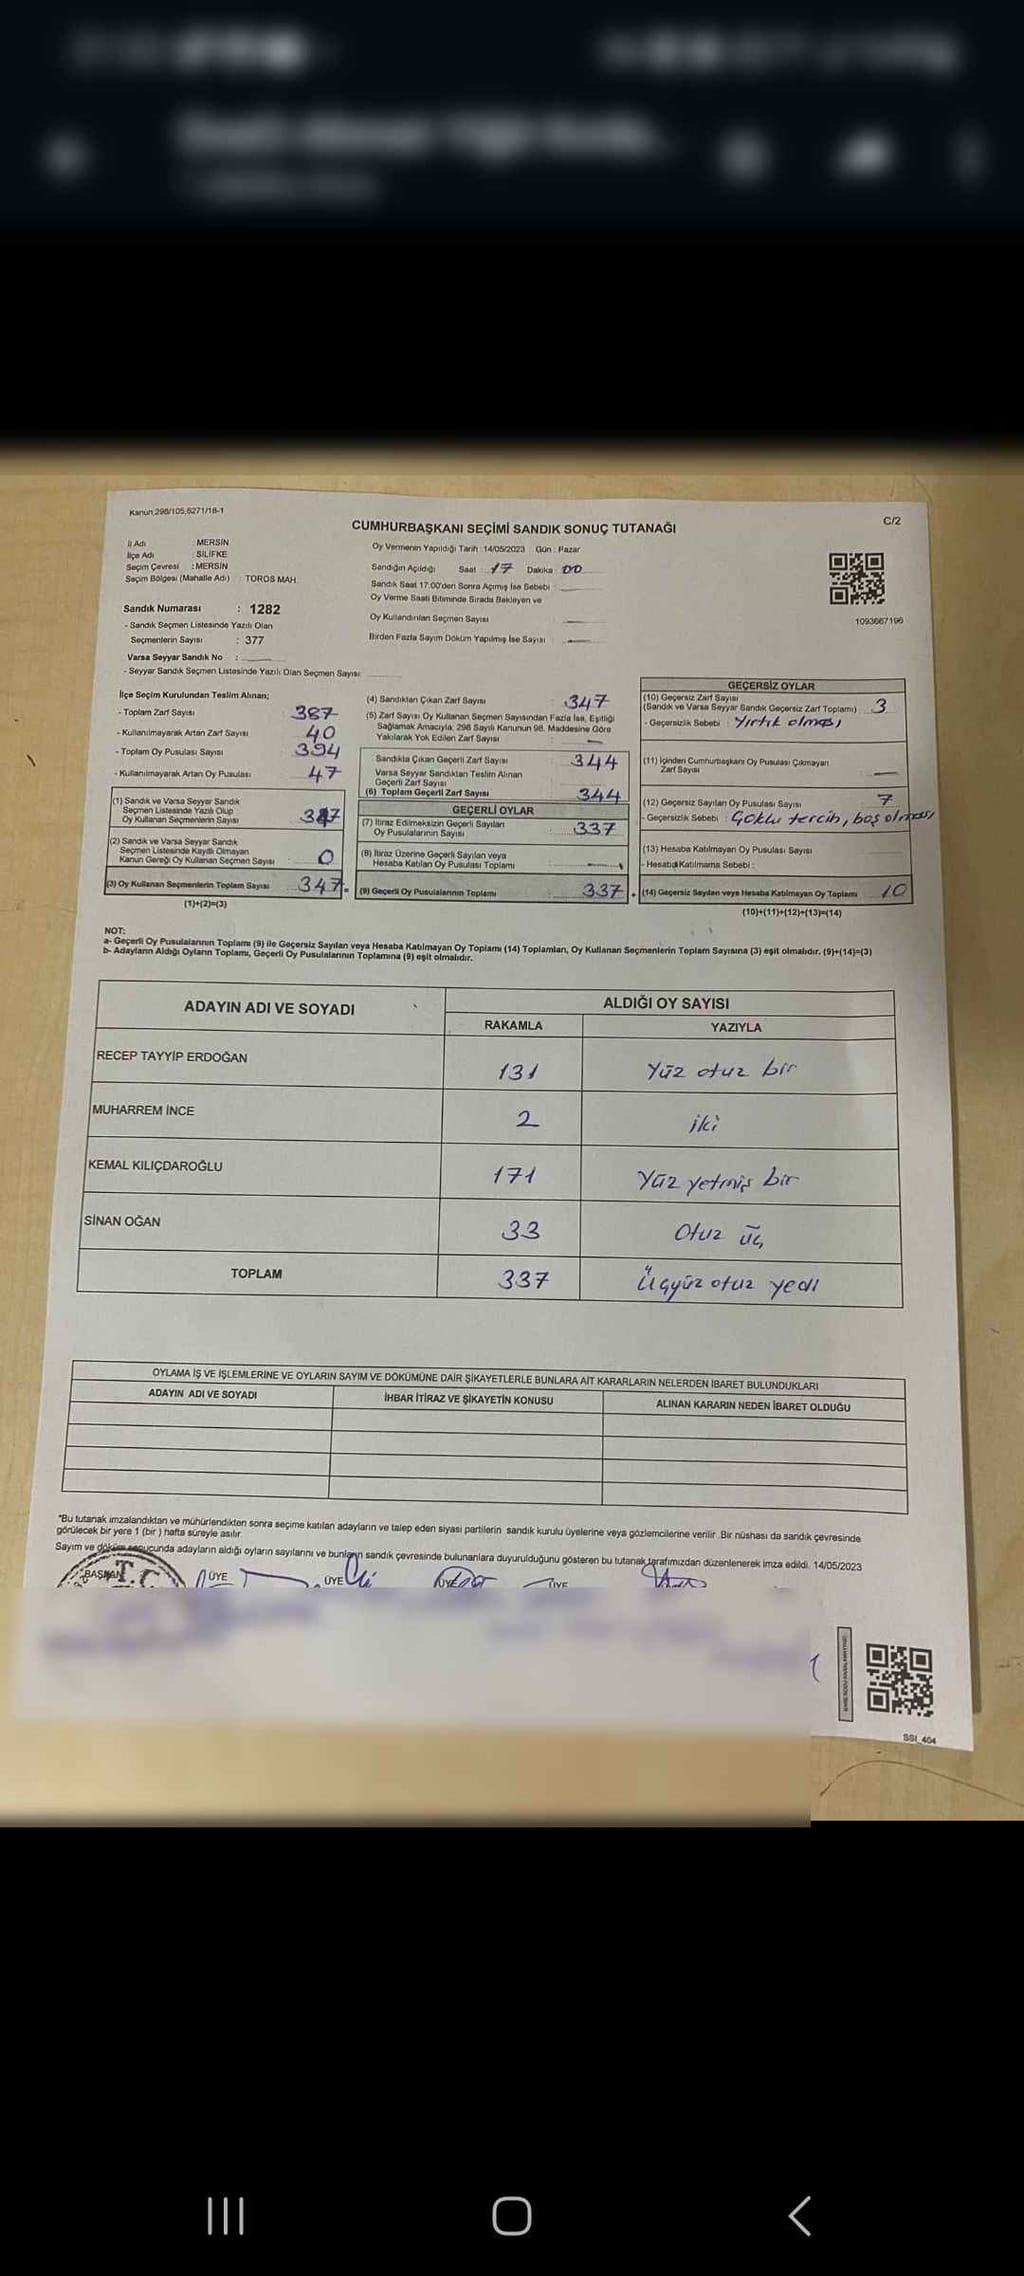 Kanun,298/105,6271/18-1
CUMHURBAŞKANI SEÇİMİ SANDIK SONUÇ TUTANAĞI
C/2
İl Adı MERSİN
İlçe Adı : SİLİFKE
Seçim Çevresi : MERSİN
Seçim Bölgesi (Mahalle Adı) : TOROS MAH.
Sandık Numarası : 1282
- Sandık Seçmen Listesinde Yazılı Olan
Seçmenlerin Sayısı : 377
Varsa Seyyar Sandık No :
- Seyyar Sandık Seçmen Listesinde Yazılı Olan Seçmen Sayısı:
Oy Vermenin Yapıldığı Tarih :14/05/2023 Gün : Pazar
Sandığın Açıldığı Saat : 17 Dakika : 00
Sandık Saat 17:00'den Sonra Açımış İse Sebebi :
Oy Verme Saati Bitiminde Sırada Bekleyen ve
Oy Kullandırılan Seçmen Sayısı
Birden Fazla Sayım Döküm Yapılmış İse Sayısı
1093667196
İlçe Seçim Kurulundan Teslim Alınan;
- Toplam Zarf Sayısı 387
- Kullanılmayarak Artan Zarf Sayısı 40
- Toplam Oy Pusulası Sayısı 394
- Kullanılmayarak Artan Oy Pusulası 47
(1) Sandık ve Varsa Seyyar Sandık
Seçmen Listesinde Yazılı Olup
Oy Kullanan Seçmenlerin Sayısı 347
(2) Sandık ve Varsa Seyyar Sandık
Seçmen Listesinde Kayıtlı Olmayan
Kanun Gereği Oy Kullanan Seçmen Sayısı 0
(3) Oy Kullanan Seçmenlerin Toplam Sayısı 347
(1)+(2)=(3)
(4) Sandıktan Çıkan Zarf Sayısı 347
(5) Zarf Sayısı Oy Kullanan Seçmen Sayısından Fazla İse, Eşitliği
Sağlamak Amacıyla; 298 Sayılı Kanunun 98. Maddesine Göre
Yakılarak Yok Edilen Zarf Sayısı : —
Sandıkta Çıkan Geçerli Zarf Sayısı 344
Varsa Seyyar Sandıktan Teslim Alınan
Geçerli Zarf Sayısı
(6) Toplam Geçerli Zarf Sayısı 344
GEÇERLİ OYLAR
(7) İtiraz Edilmeksizin Geçerli Sayılan
Oy Pusulalarının Sayısı 337
(8) İtiraz Üzerine Geçerli Sayılan veya
Hesaba Katılan Oy Pusulası Toplamı —
(9) Geçerli Oy Pusulalarının Toplamı 337
GEÇERSİZ OYLAR
(10) Geçersiz Zarf Sayısı
(Sandık ve Varsa Seyyar Sandık Geçersiz Zarf Toplamı) 3
- Geçersizlik Sebebi : Yırtık olması
(11) İçinden Cumhurbaşkanı Oy Pusulası Çıkmayan
Zarf Sayısı —
(12) Geçersiz Sayılan Oy Pusulası Sayısı 7
- Geçersizlik Sebebi : Çoklu tercih, boş olması
(13) Hesaba Katılmayan Oy Pusulası Sayısı
- Hesaba Katılmama Sebebi :
(14) Geçersiz Sayılan veya Hesaba Katılmayan Oy Toplamı 10
(10)+(11)+(12)+(13)=(14)
NOT:
a- Geçerli Oy Pusulalarının Toplamı (9) ile Geçersiz Sayılan veya Hesaba Katılmayan Oy Toplamı (14) Toplamları, Oy Kullanan Seçmenlerin Toplam Sayısına (3) eşit olmalıdır. (9)+(14)=(3)
b- Adayların Aldığı Oyların Toplamı, Geçerli Oy Pusulalarının Toplamına (9) eşit olmalıdır.
ADAYIN ADI VE SOYADI ALDIĞI OY SAYISI
RAKAMLA YAZIYLA
RECEP TAYYİP ERDOĞAN 131 Yüz otuz bir
MUHARREM İNCE 2 iki
KEMAL KILIÇDAROĞLU 171 Yüz yetmiş bir
SİNAN OĞAN 33 Otuz üç
TOPLAM 337 Üçyüz otuz yedi
OYLAMA İŞ VE İŞLEMLERİNE VE OYLARIN SAYIM VE DÖKÜMÜNE DAİR ŞİKAYETLERLE BUNLARA AİT KARARLARIN NELERDEN İBARET BULUNDUKLARI
ADAYIN ADI VE SOYADI İHBAR İTİRAZ VE ŞİKAYETİN KONUSU ALINAN KARARIN NEDEN İBARET OLDUĞU
*Bu tutanak imzalandıktan ve mühürlendikten sonra seçime katılan adayların ve talep eden siyasi partilerin sandık kurulu üyelerine veya gözlemcilerine verilir .Bir nüshası da sandık çevresinde
görülecek bir yere 1 (bir ) hafta süreyle asılır.
Sayım ve döküm sonucunda adayların aldığı oyların sayılarını ve bunların sandık çevresinde bulunanlara duyurulduğunu gösteren bu tutanak tarafımızdan düzenlenerek imza edildi. 14/05/2023
BAŞKAN ÜYE ÜYE ÜYE ÜYE
T.C
SSI_404